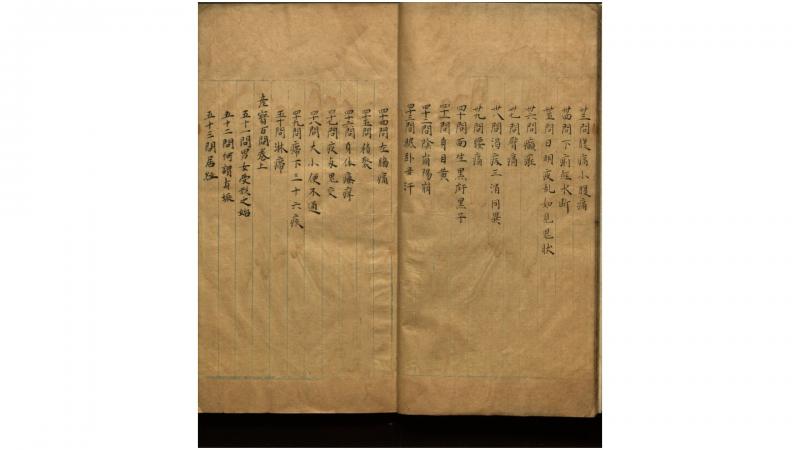 卅三問腹痛小腹痛
卅四問下痢經水斷
卅五問日明夜乱如見鬼狀
卅六問癲疾
卅七問臂痛
卅八問渴疾三消同異
卅九問腰痛
四十問面生黑䵟黑子
四十一問身目黃
四十二問陰崩陽崩
四十三問眠卧汗
四十四問左脇痛
四十五問積聚
四十六問身体瘙痒
四十七問夜与鬼交
四十八問大小便不通
四十九問帶下三十六疾
五十問淋
產寶百問卷上
五十一問男女受形之始
五十二問何謂有娠
五十三問居經